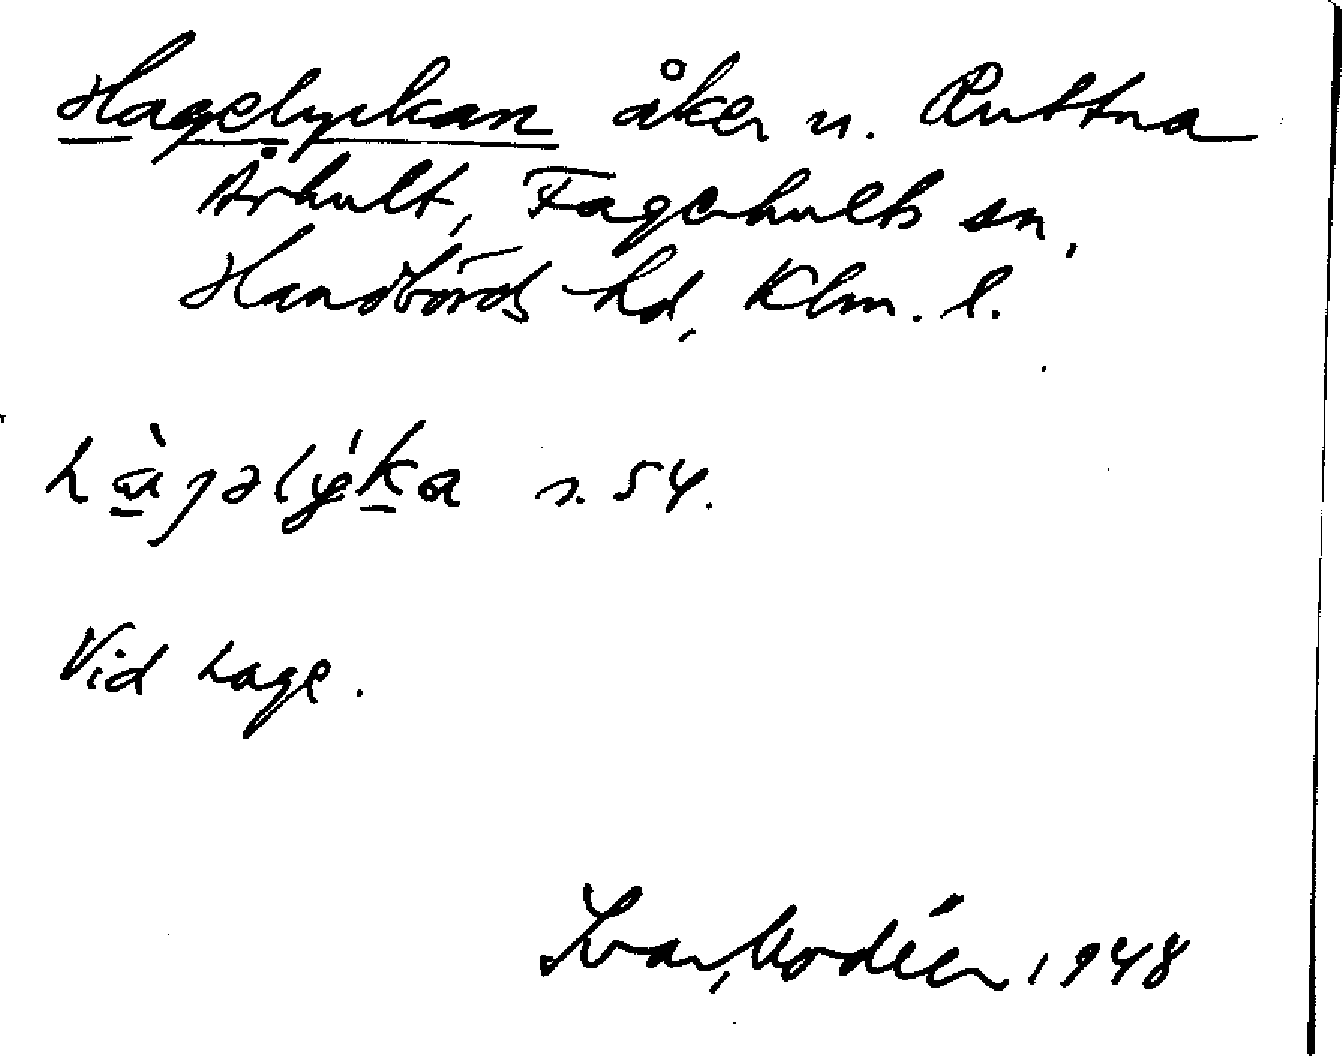 Hagelyckan åker u. Ruttna
Århult, Fagerhults sn,
Handbörds hd, Klm. l.
hàgəlýka s. 54.
Vid hage.
Ivar Modéer 1948